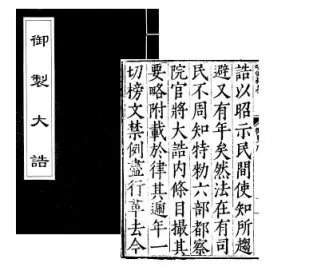 御製大誥
誥以昭示民間使知所趨
避又有年矣然法在有司
民不周知特勑六部都察
院官將大誥內條目撮其
要略附載於律其遞年一
切榜文禁例盡行革去今